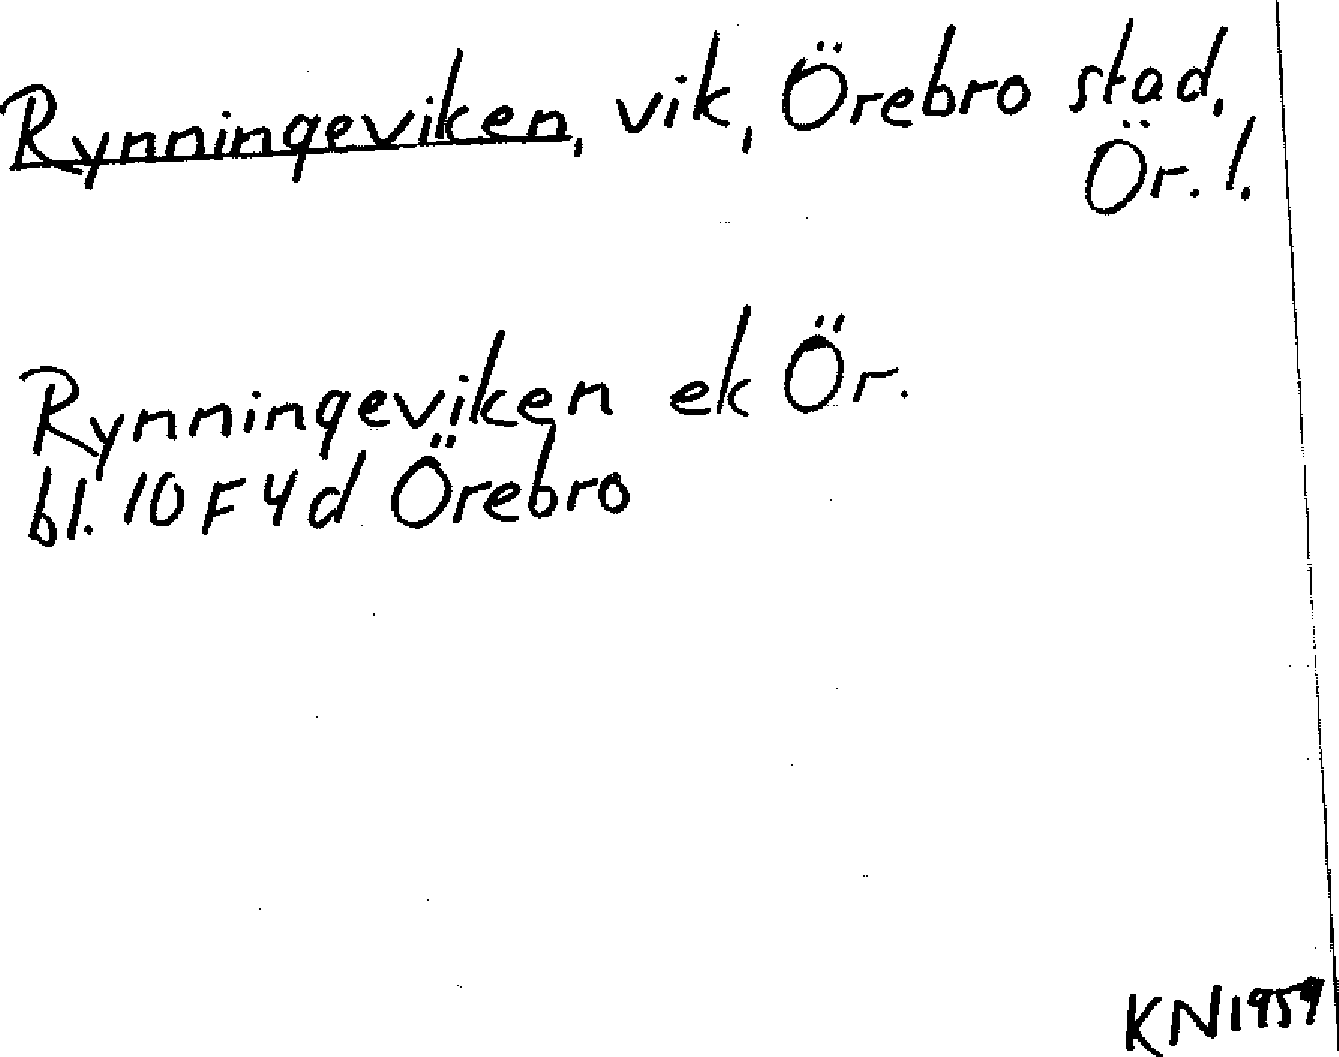 Rynningeviken, vik, Örebro stad,
Ör. l.
Rynningeviken ek Ör.
bl. 10 F 4 d Örebro
KN 1959